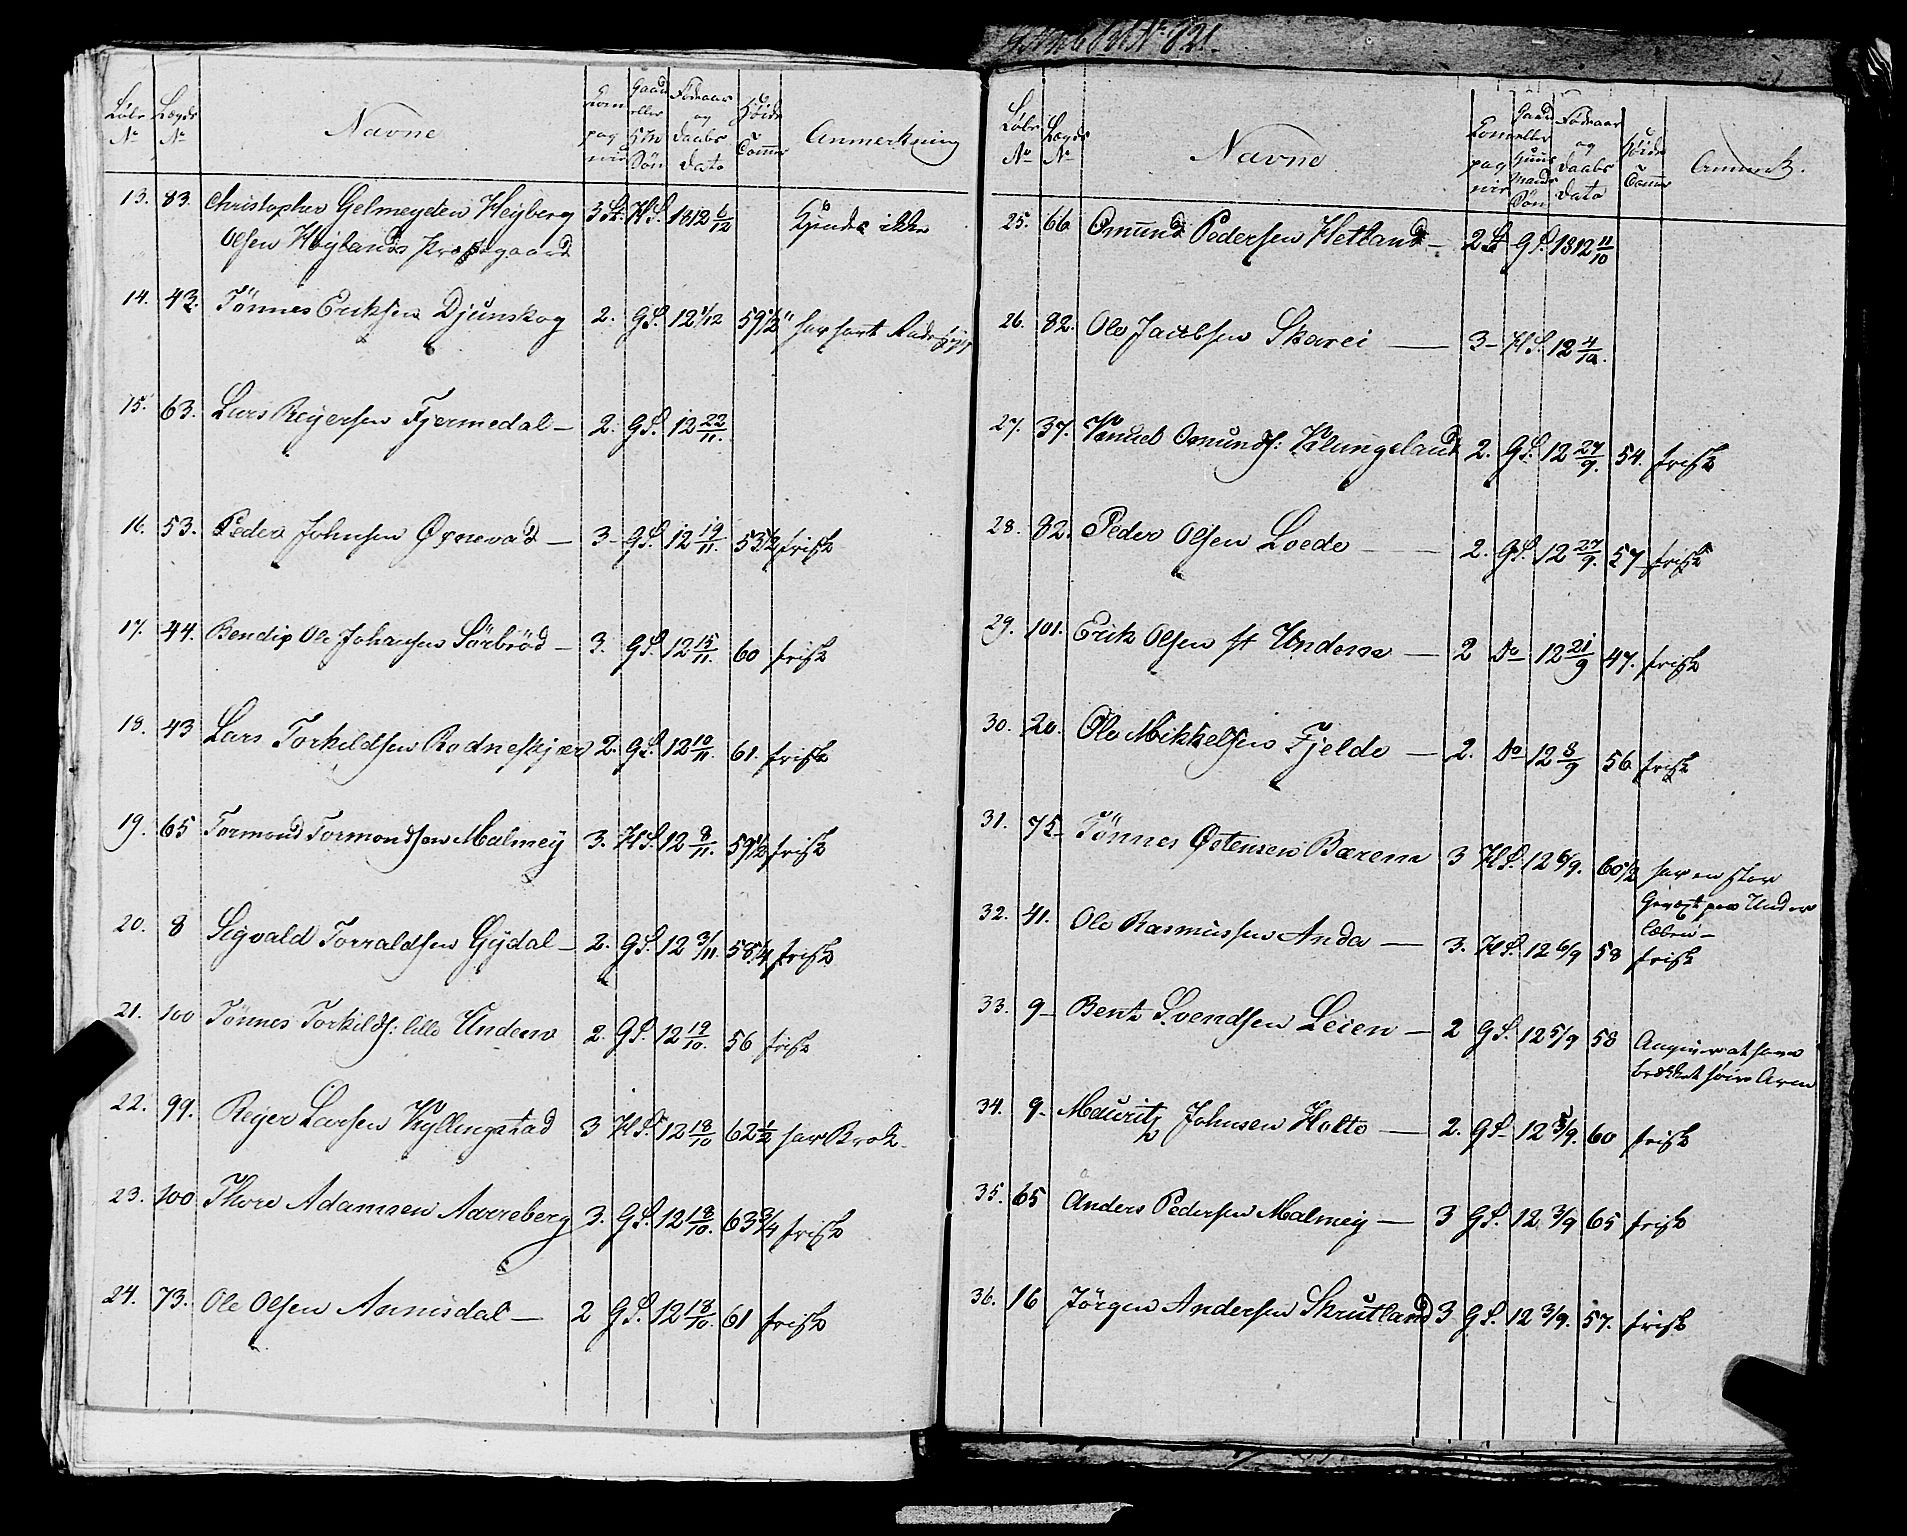 Løbe No Lægds No Navne Kompagnie Gaard eller H M Søn Fødeaar og Daabs Dato Høide Tomer Anmerkning
13. 83. Christopher Gelmeyden Heyberg 3die H.S. 1812 6/12 Kjendes ikke
Olsen Høylands Præstgaard
14. 43. Tönnes Eriksen Djunskog 2. G.S. 12 1/12 59 1/2" har sort
15. 63. Lars Reyersen Fjermedal — 2. G.S. 12 22/11.
16. 53. Peder Johnsen Øxnevad — 3 – G.S. 12 19/11. 53 1/2 frisk
17. 44. Bendix Ole Johansen Sörbröd — 3. G.S. 12 15/11. 60 frisk
18. 43 Lars Torkildsen Rodneskjær 2. G.S. 12 10/11. 61. frisk
19. 65 Tormond Tormondsen Malmey 3. H.S. 12 8/11. 59 1/2 frisk
20. 8 Sigvald Torraldsen Gydal — 2. G.S. 12 3/11. 58 1/4 frisk
21. 100 Tönnes Torkilds: lille Undem 2. G.S. 12 19/10. 56 frisk
22. 99. Reyer Larsen Kyllingstad 3 H.S. 12 18/10 62 1/2 har Brok.
23. 100 Thore Adamsen Aarreberg 3. G.S. 12 18/10. 63 3/4 frisk
24. 73. Ole Olsen Annisdal — 2 G.S. 12 18/10. 61 frisk
No 821.
Løbe No Lægds No Navne Kompagnie Gaard eller Huus Mands Søn Fødeaar og Daabs Dato Høide Tomer Anmærk.
25. 66 Omund Pedersen Hetland — 2d G.S. 1812 11/10
26. 82. Ole Jacobsen Skarei — 3 – H.S. 12 4/10.
27. 37. Omunds: Klungeland 2. G.S. 12 27/9. 54. frisk
28. 82. Peder Olsen Loede — — 2. G.S. 12 27/9. 57 frisk
29. 101. Erik Olsen st Undem — 2 Do 12 21/9 47. frisk
30. 20. Ole Mikkelsen Fjelde — 2. Do 12 8/9 56 frisk
31. 75 – Tönnes Östensen Bærem 3 H.S. 12 6/9. 60 1/2 har en stor
Gevæxt paa Under
læben —
32. 41. Ole Rasmussen Anda — 3. H.S. 12 6/9 58 frisk
33. 9 – Bent Svendsen Leien — 2 G.S. 12 5/9 58 Angiver at have
brækket høire Arm
34. 9 – Mauritz Johnsen Holte — 2. G.S – 12 5/9. 60 frisk
35. 65 Anders Pedersen Malmeij — 3 G.S. 12 3/9 65 frisk
36. 16 Jörgen Andersen Skrutland 3 G.S. 12 3/9. 57. frisk